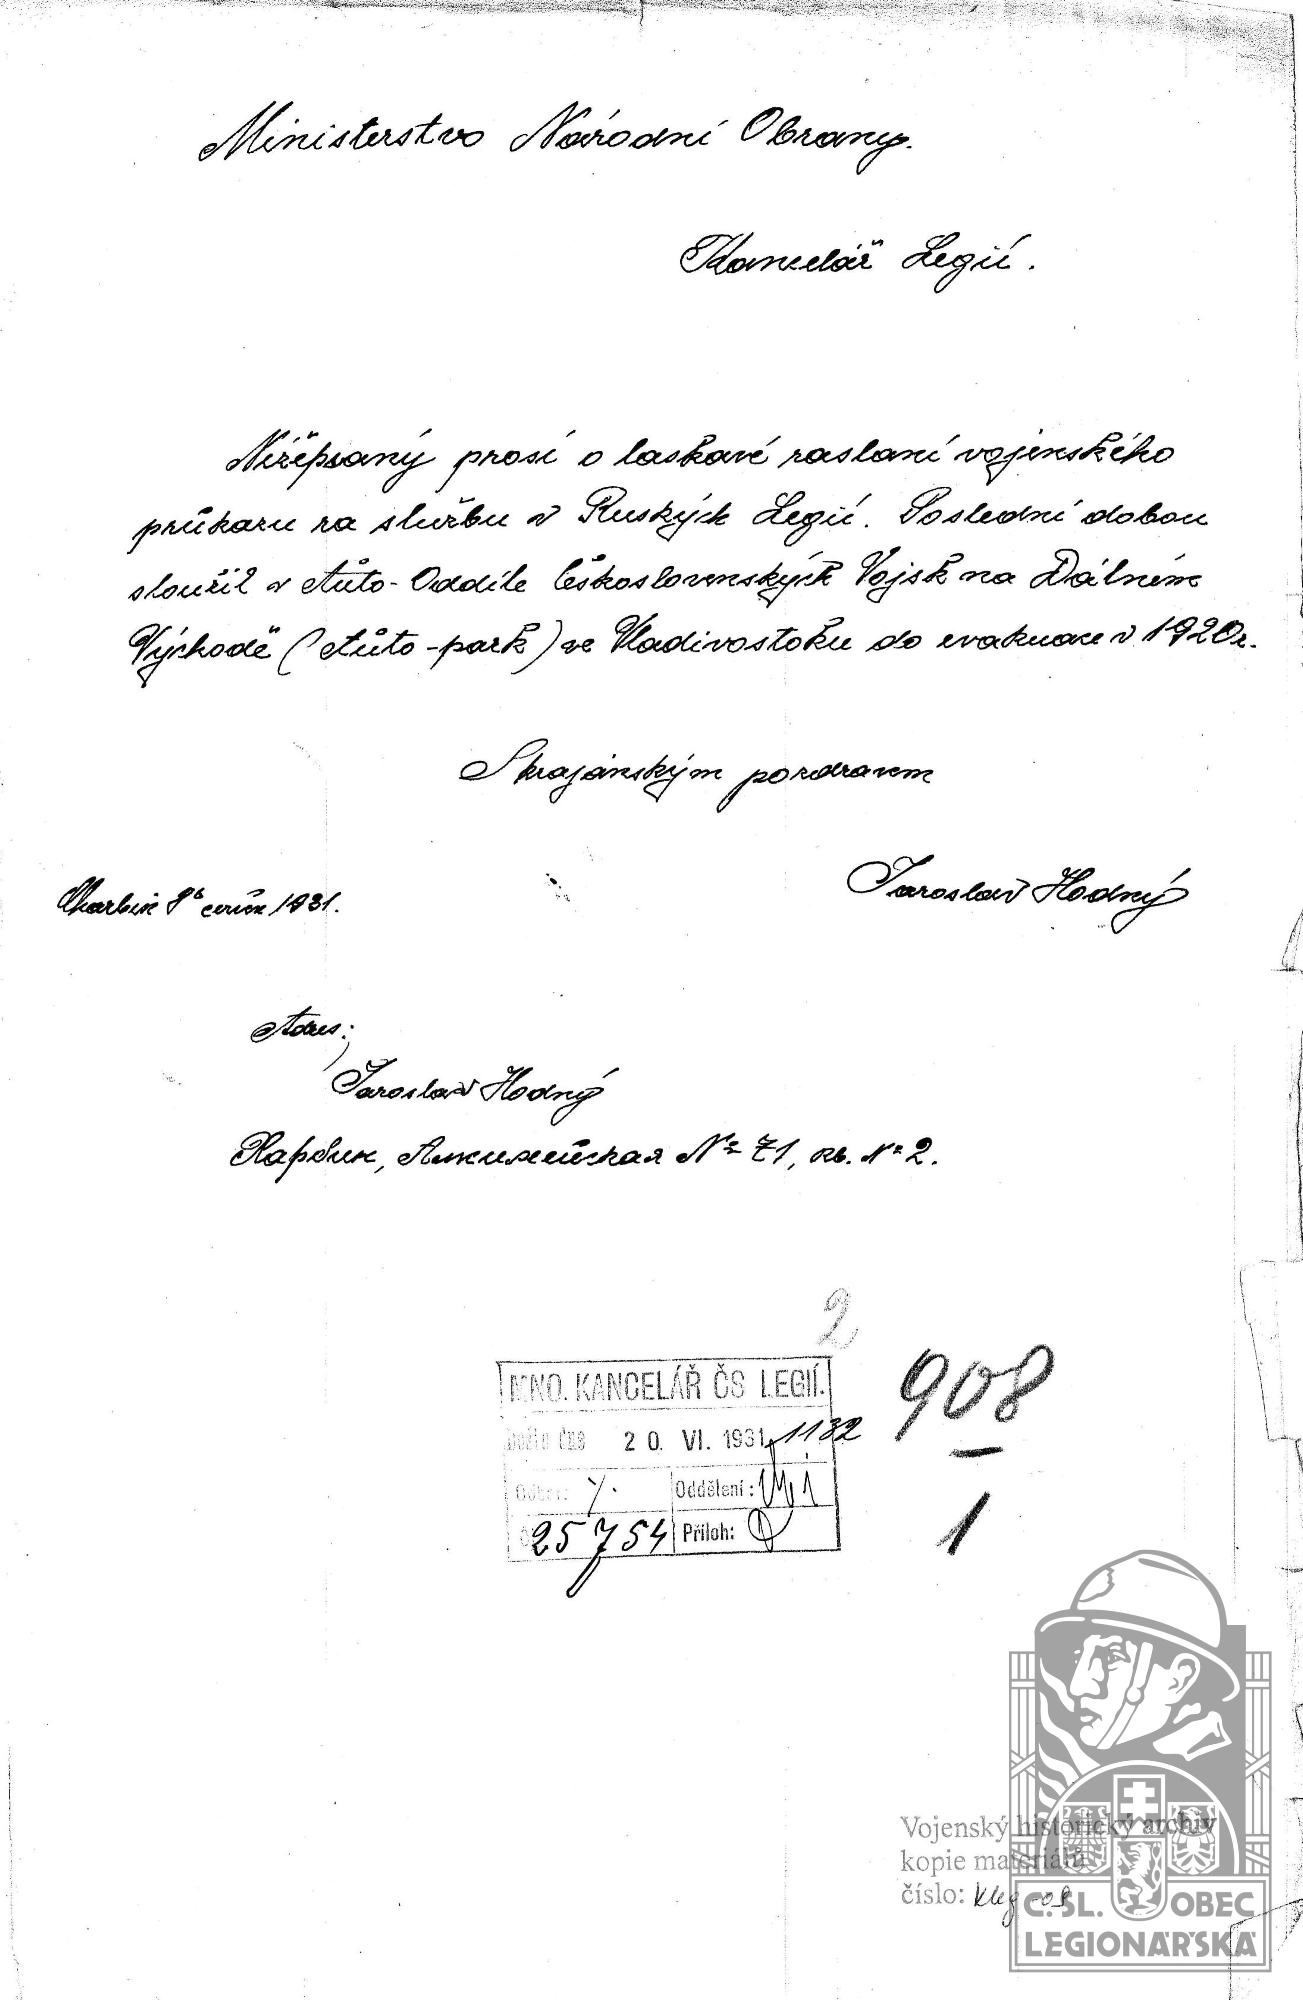 Ministerstvo Národní Obrany.
Kancelář Legií.
Nížepsaný prosí o laskavé zaslaní vojenského
průkazu za službu v Ruských Legií. Poslední dobou
sloužil v Aůto-Oddíle Československých Vojsk na Dálném
Východě (Aůto-park) ve Vladivostoku do evakuace v 1920 r.
S krajánským pozdravem
Jaroslav Hodný
Charbin 1931.
Adres:
Jaroslav Hodný
Харбин, № 71, кв. № 2.
2
MNO. KANCELÁŘ ČS LEGIÍ.
Došlo dne 20. VI. 1931 1132
Oddělení:
25754 Příloh:
908
1
Vojenský historický archiv
kopie materiálů
číslo: kleg-08
Č. SL. OBEC
LEGIONÁŘSKÁ